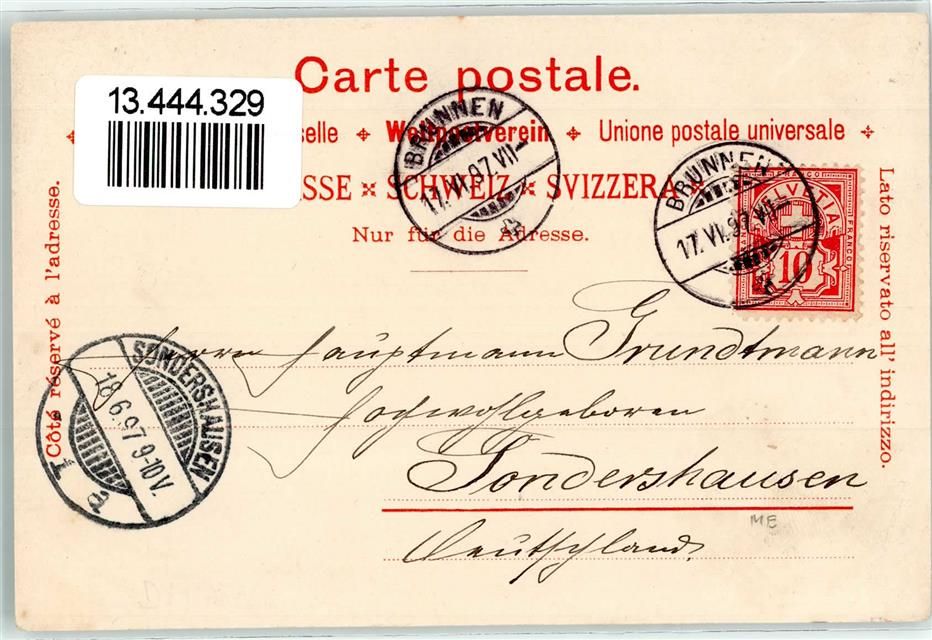 Carte postale.
13.444.329
selle ✣ Weltpostverein ✣ Unione postale universale ✣
SSE × SCHWEIZ × SVIZZERA
Nur für die Adresse.
Côté réservé à l'adresse.
Lato riservato all' indirizzo.
BRUNNEN
17. VI. 97. VII
BRUNNEN
17. VI. 97. VII
HELVETIA
FRANCO
10
Herrn Hauptmann Grundtmann
Hochwohlgeboren
Sondershausen
Deutschland
SONDERSHAUSEN
18 6.97 9-10 V.
1 a
ME